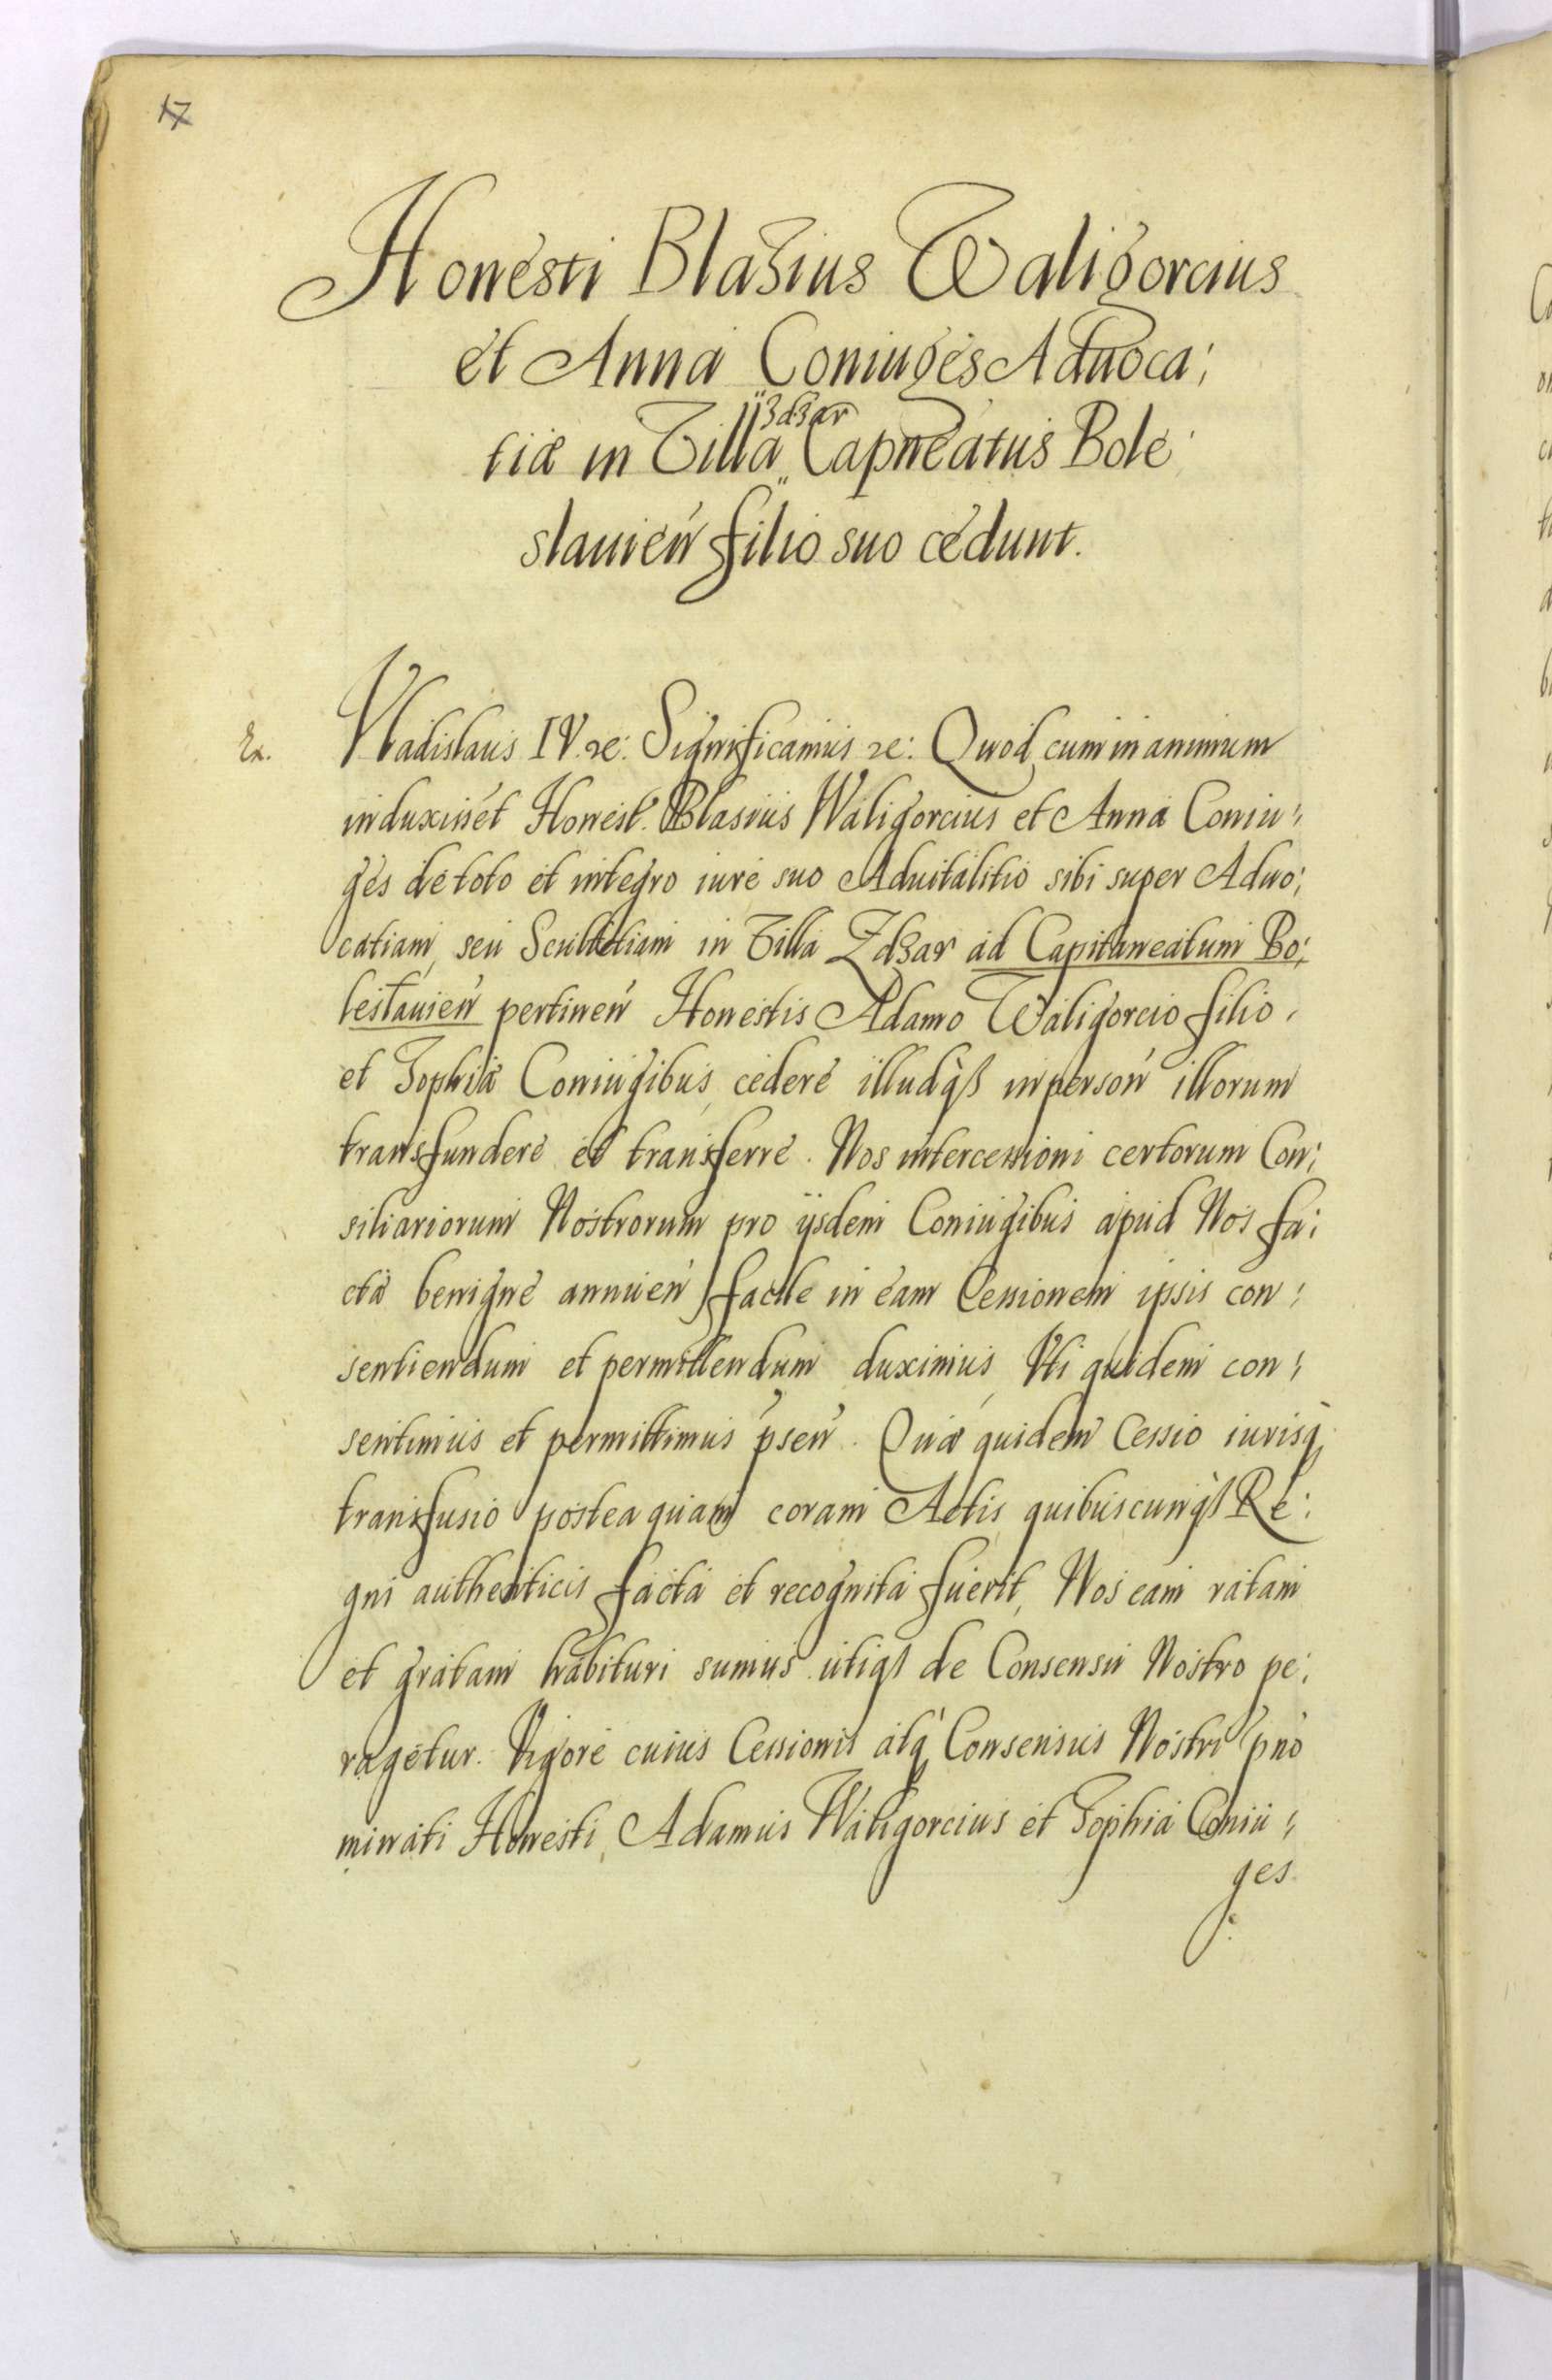 17
Honesti Blasius Waligorcius
et Anna Coniuges Aduoca:
Zdzar
tiæ in Villa Capneatus Bole:
slauień filio suo cedunt.
Ex.
Vladislaus IV. &c: Significamus &c: Quod, cum in animum
induxisset Honest. Blasius Waligorcius et Anna Coniu:
ges de toto et integro iure suo Aduitalitio sibi super Aduo:
catiam, seu Scultetiam in Villa Zdzar ad Capitaneatum Bo:
leslauień pertineń Honestis Adamo Waligorcio filio,
et Sophiæ Coniugibus, cedere illudq3 in persoń illorum
transfundere et transferre. Nos intercessioni certorum Con:
siliariorum Nostrorum pro ijsdem Coniugibus apud Nos fa:
ctæ benigne annueń facile in eam Cessionem ipsis con:
sentiendum et permittendum duximus, Vti quidem con:
sentimus et permittimus pseń. Quæ quidem Cessio iurisq
transfusio posteaquam coram Actis quibuscunq3 Re:
gni authenticis facta et recognita fuerit, Nos eam ratam
et gratam habituri sumus utiq3 de Consensu Nostro pe:
ragetur. Vigore cuius Cessionis atq Consensus Nostri pno
minati Honesti, Adamus Waligorcius et Sophia Coniu:
ges